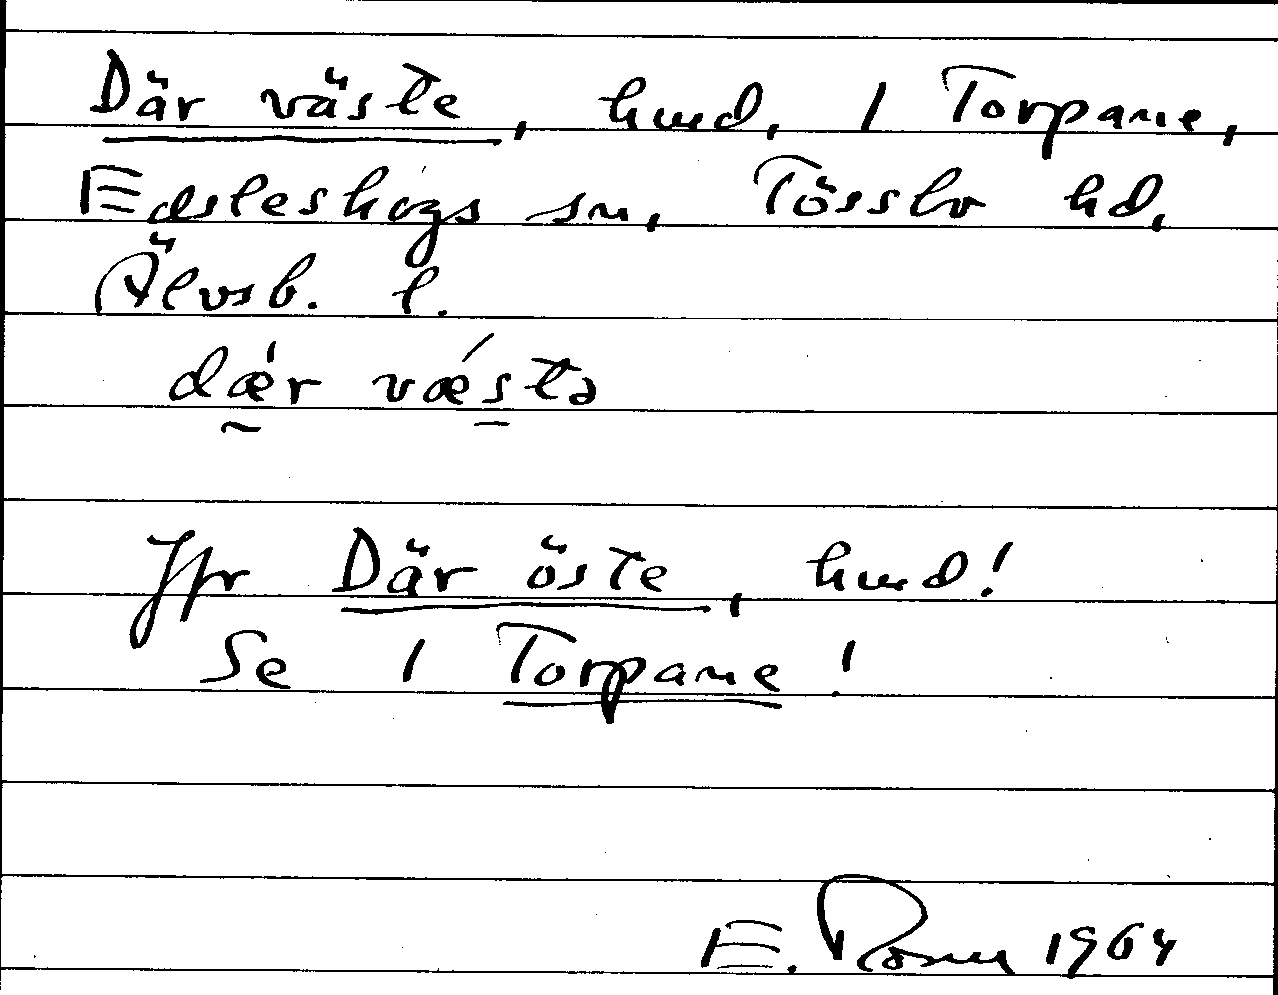 Där väste, hmd, 1 Torpane,
Edsleskogs sn, Tössbo hd,
Älvsb. l.
dǽr vǽstə
Jfr Där öste, hmd!
Se 1 Torpane!
E. Rosen 1964